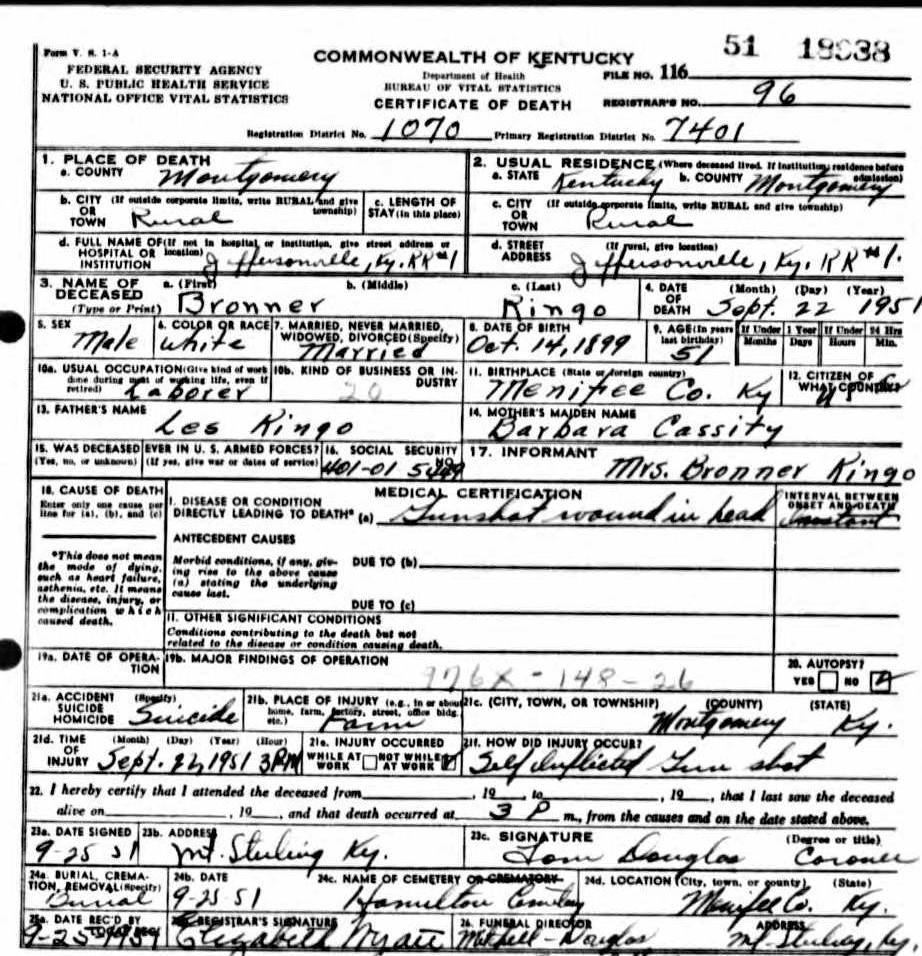 Form V. S. 1-A
51 18938
FEDERAL SECURITY AGENCY
U. S. PUBLIC HEALTH SERVICE
NATIONAL OFFICE VITAL STATISTICS
COMMONWEALTH OF KENTUCKY
Department of Health
BUREAU OF VITAL STATISTICS
CERTIFICATE OF DEATH
FILE NO. 116
REGISTRAR'S NO. 96
Registration District No. 1070 Primary Registration District No. 7401
1. PLACE OF DEATH
a. COUNTY Montgomery
2. USUAL RESIDENCE (Where deceased lived. If institution; residence before admission)
a. STATE Kentucky b. COUNTY Montgomery
b. CITY (If outside corporate limits, write RURAL and give township)
OR
TOWN Rural
c. LENGTH OF
STAY (in this place)
c. CITY (If outside corporate limits, write RURAL and give township)
OR
TOWN Rural
d. FULL NAME OF (If not in hospital or institution, give street address or location)
HOSPITAL OR
INSTITUTION Jeffersonville, Ky. RR #1
d. STREET (If rural, give location)
ADDRESS Jeffersonville, Ky. RR #1.
3. NAME OF DECEASED (Type or Print)
a. (First) Bronner b. (Middle) c. (Last) Ringo
4. DATE OF DEATH (Month) (Day) (Year)
Sept. 22 1951
5. SEX
Male
6. COLOR OR RACE
White
7. MARRIED, NEVER MARRIED, WIDOWED, DIVORCED (Specify)
Married
8. DATE OF BIRTH
Oct. 14, 1899
9. AGE (In years last birthday)
51
If Under 1 Year
Months Days
If Under 24 Hrs
Hours Min.
10a. USUAL OCCUPATION (Give kind of work done during most of working life, even if retired)
Laborer
10b. KIND OF BUSINESS OR INDUSTRY
20
11. BIRTHPLACE (State or foreign country)
Menifee Co. Ky
12. CITIZEN OF WHAT COUNTRY
13. FATHER'S NAME
Les Ringo
14. MOTHER'S MAIDEN NAME
Barbara Cassity
15. WAS DECEASED EVER IN U. S. ARMED FORCES?
(Yes, no, or unknown) (If yes, give war or dates of service)
16. SOCIAL SECURITY NO.
401-01
17. INFORMANT
Mrs. Bronner Ringo
18. CAUSE OF DEATH
Enter only one cause per line for (a), (b), and (c)
MEDICAL CERTIFICATION
INTERVAL BETWEEN ONSET AND DEATH
I. DISEASE OR CONDITION
DIRECTLY LEADING TO DEATH* (a) Gunshot wound in head Instant
ANTECEDENT CAUSES
*This does not mean the mode of dying, such as heart failure, asthenia, etc. It means the disease, injury, or complication which caused death.
Morbid conditions, if any, giving rise to the above cause (a) stating the underlying cause last.
DUE TO (b)
DUE TO (c)
II. OTHER SIGNIFICANT CONDITIONS
Conditions contributing to the death but not related to the disease or condition causing death.
19a. DATE OF OPERATION
19b. MAJOR FINDINGS OF OPERATION
976X-148-26
20. AUTOPSY?
YES NO
21a. ACCIDENT (Specify)
SUICIDE
HOMICIDE Suicide
21b. PLACE OF INJURY (e.g., in or about home, farm, factory, street, office bldg. etc.)
Farm
21c. (CITY, TOWN, OR TOWNSHIP) (COUNTY) (STATE)
Montgomery Ky.
21d. TIME OF INJURY (Month) (Day) (Year) (Hour)
Sept. 22, 1951 3 PM
21e. INJURY OCCURRED
WHILE AT WORK NOT WHILE AT WORK
21f. HOW DID INJURY OCCUR?
Self Inflicted Gun shot
22. I hereby certify that I attended the deceased from , 19 to , 19 , that I last saw the deceased
alive on , 19 , and that death occurred at 3 P m., from the causes and on the date stated above.
23a. DATE SIGNED
9-25 51
23b. ADDRESS
Mt. Sterling Ky.
23c. SIGNATURE (Degree or title)
Tom Douglas Coroner
24a. BURIAL, CREMATION, REMOVAL (Specify)
Burial
24b. DATE
9-25 51
24c. NAME OF CEMETERY OR CREMATORY
Hamilton Cemetery
24d. LOCATION (City, town, or county) (State)
Menifee Co. Ky.
25a. DATE REC'D BY LOCAL REG.
9-25-1951
REGISTRAR'S SIGNATURE
Elizabeth Wyatt
26. FUNERAL DIRECTOR
Mitchell-Douglas
ADDRESS
Mt-Sterling, Ky.